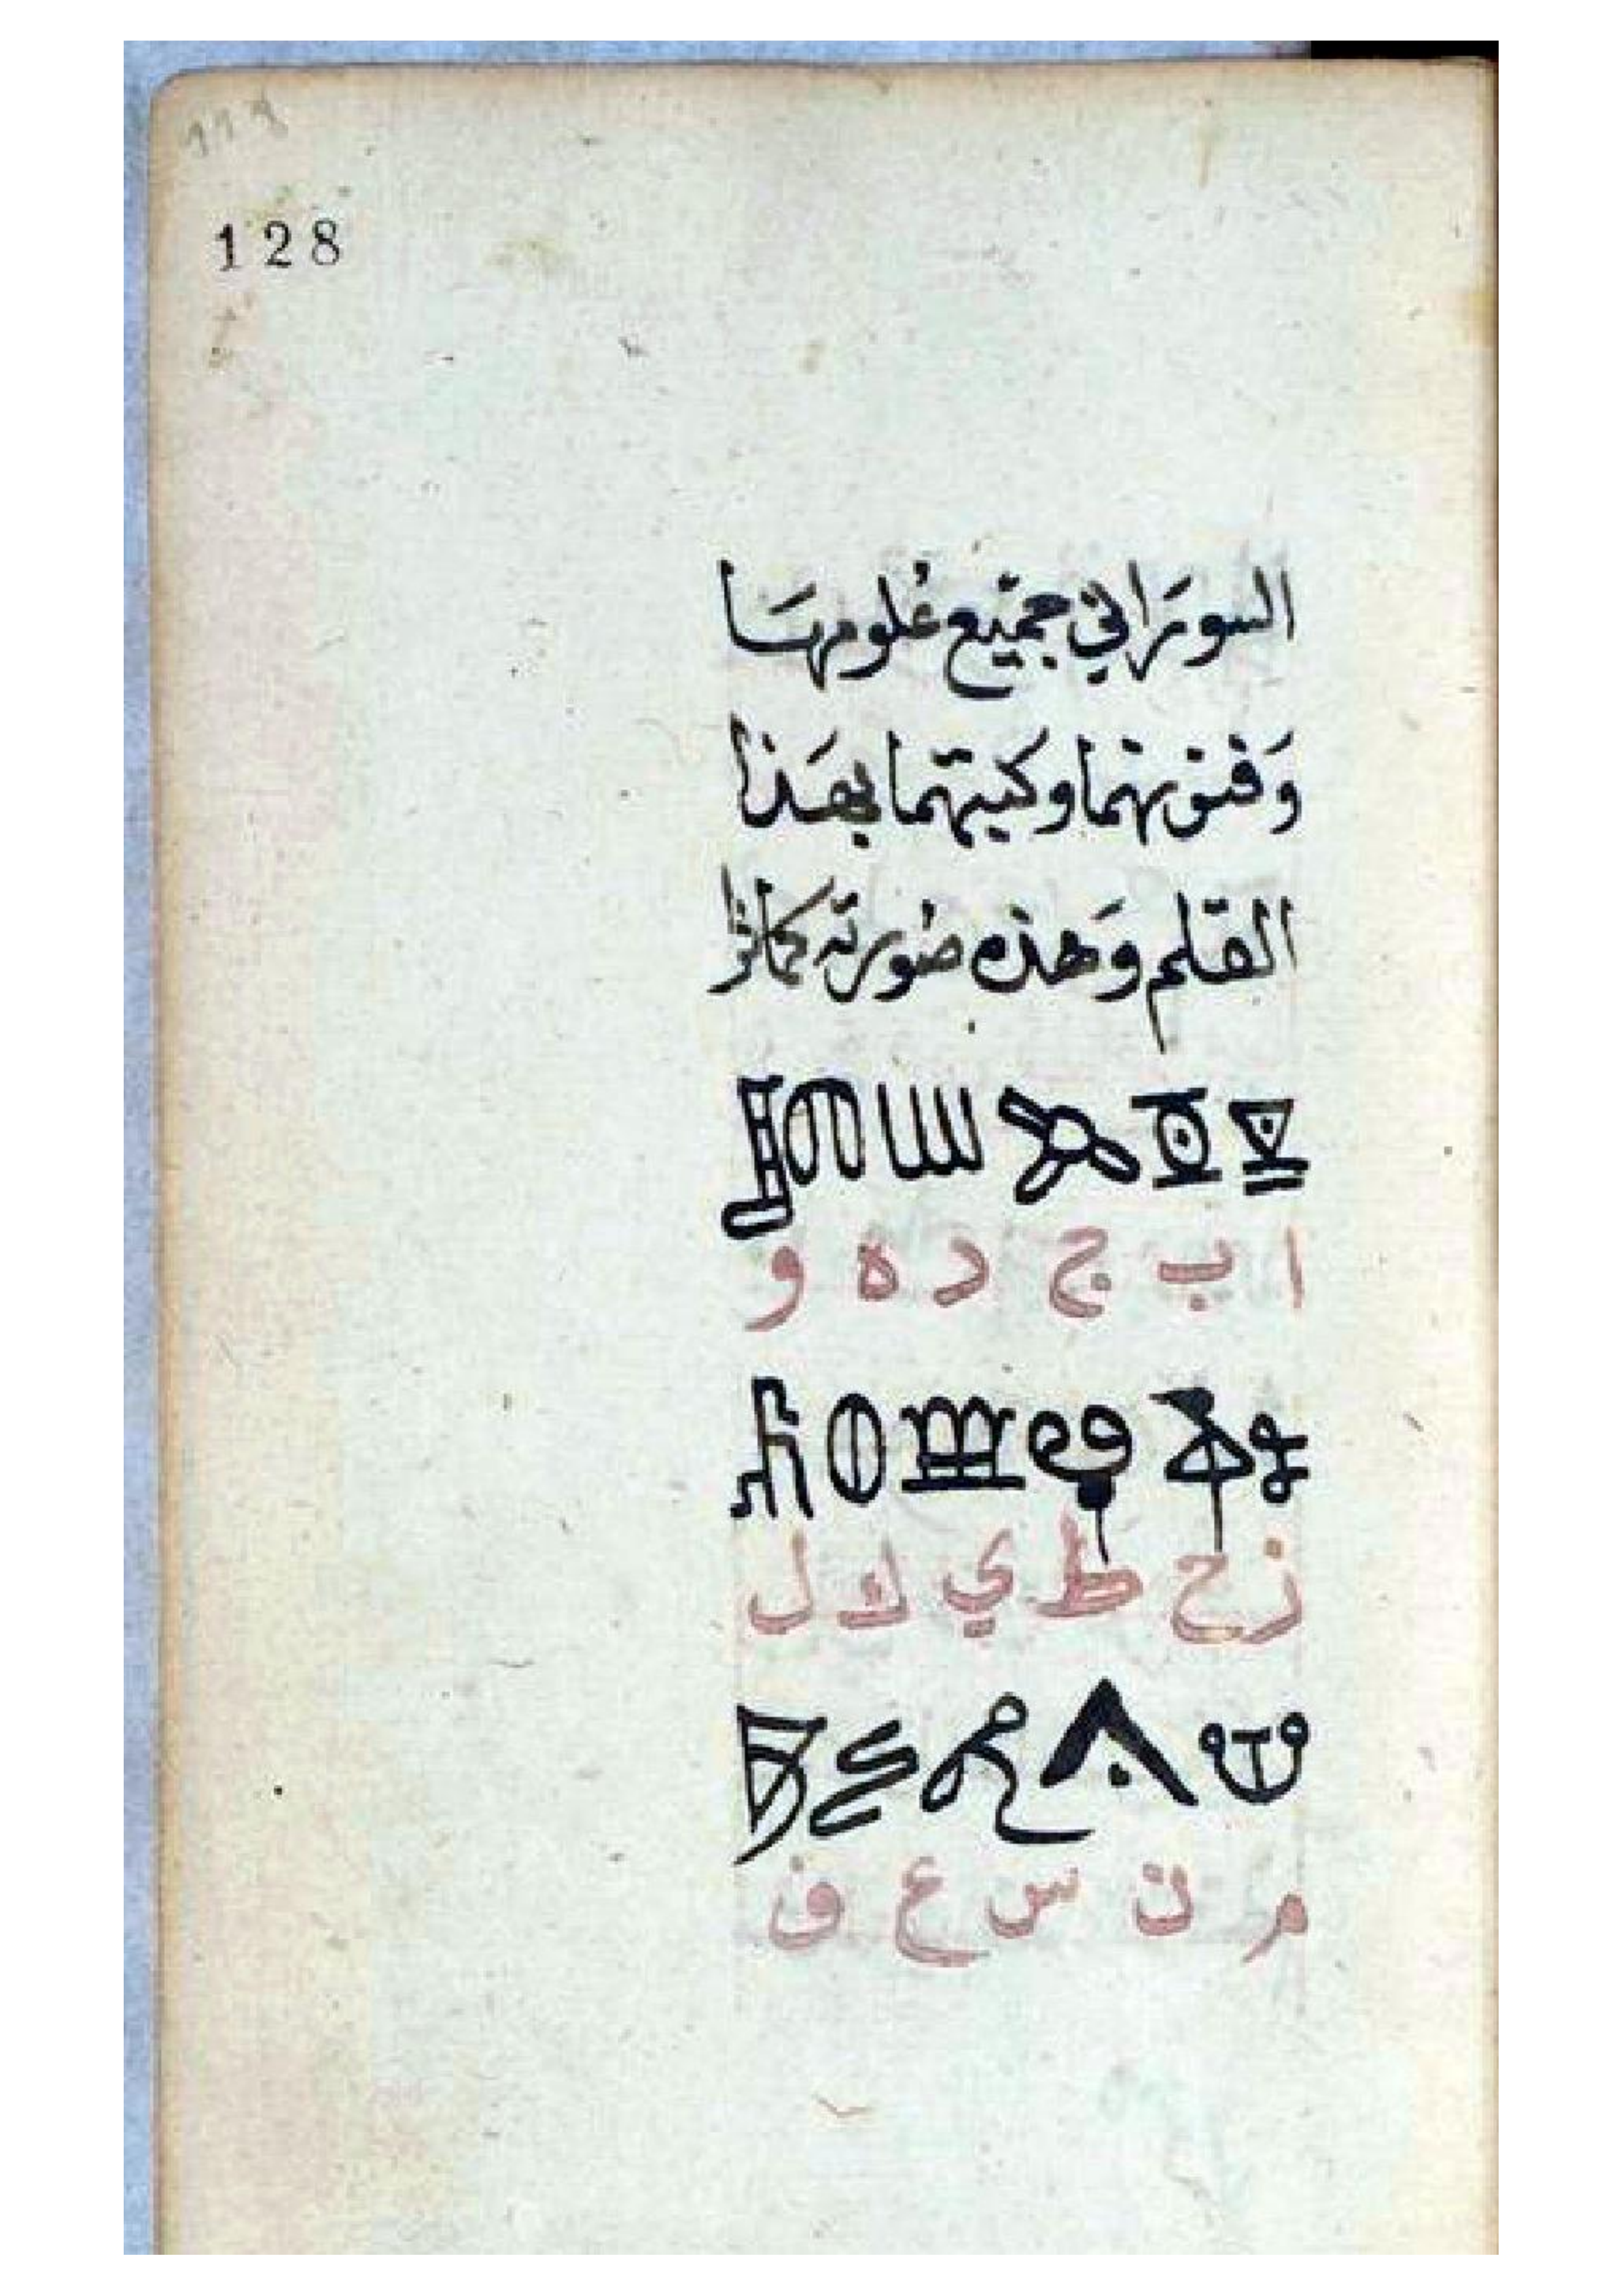 128
السوراني جميع علومها
وفنونهما وكتبهما بهذا
القلم وهذه صورته كما ترا
ا ب ج د ه و
ز ح ط ي ك ل
م ن س ع ف